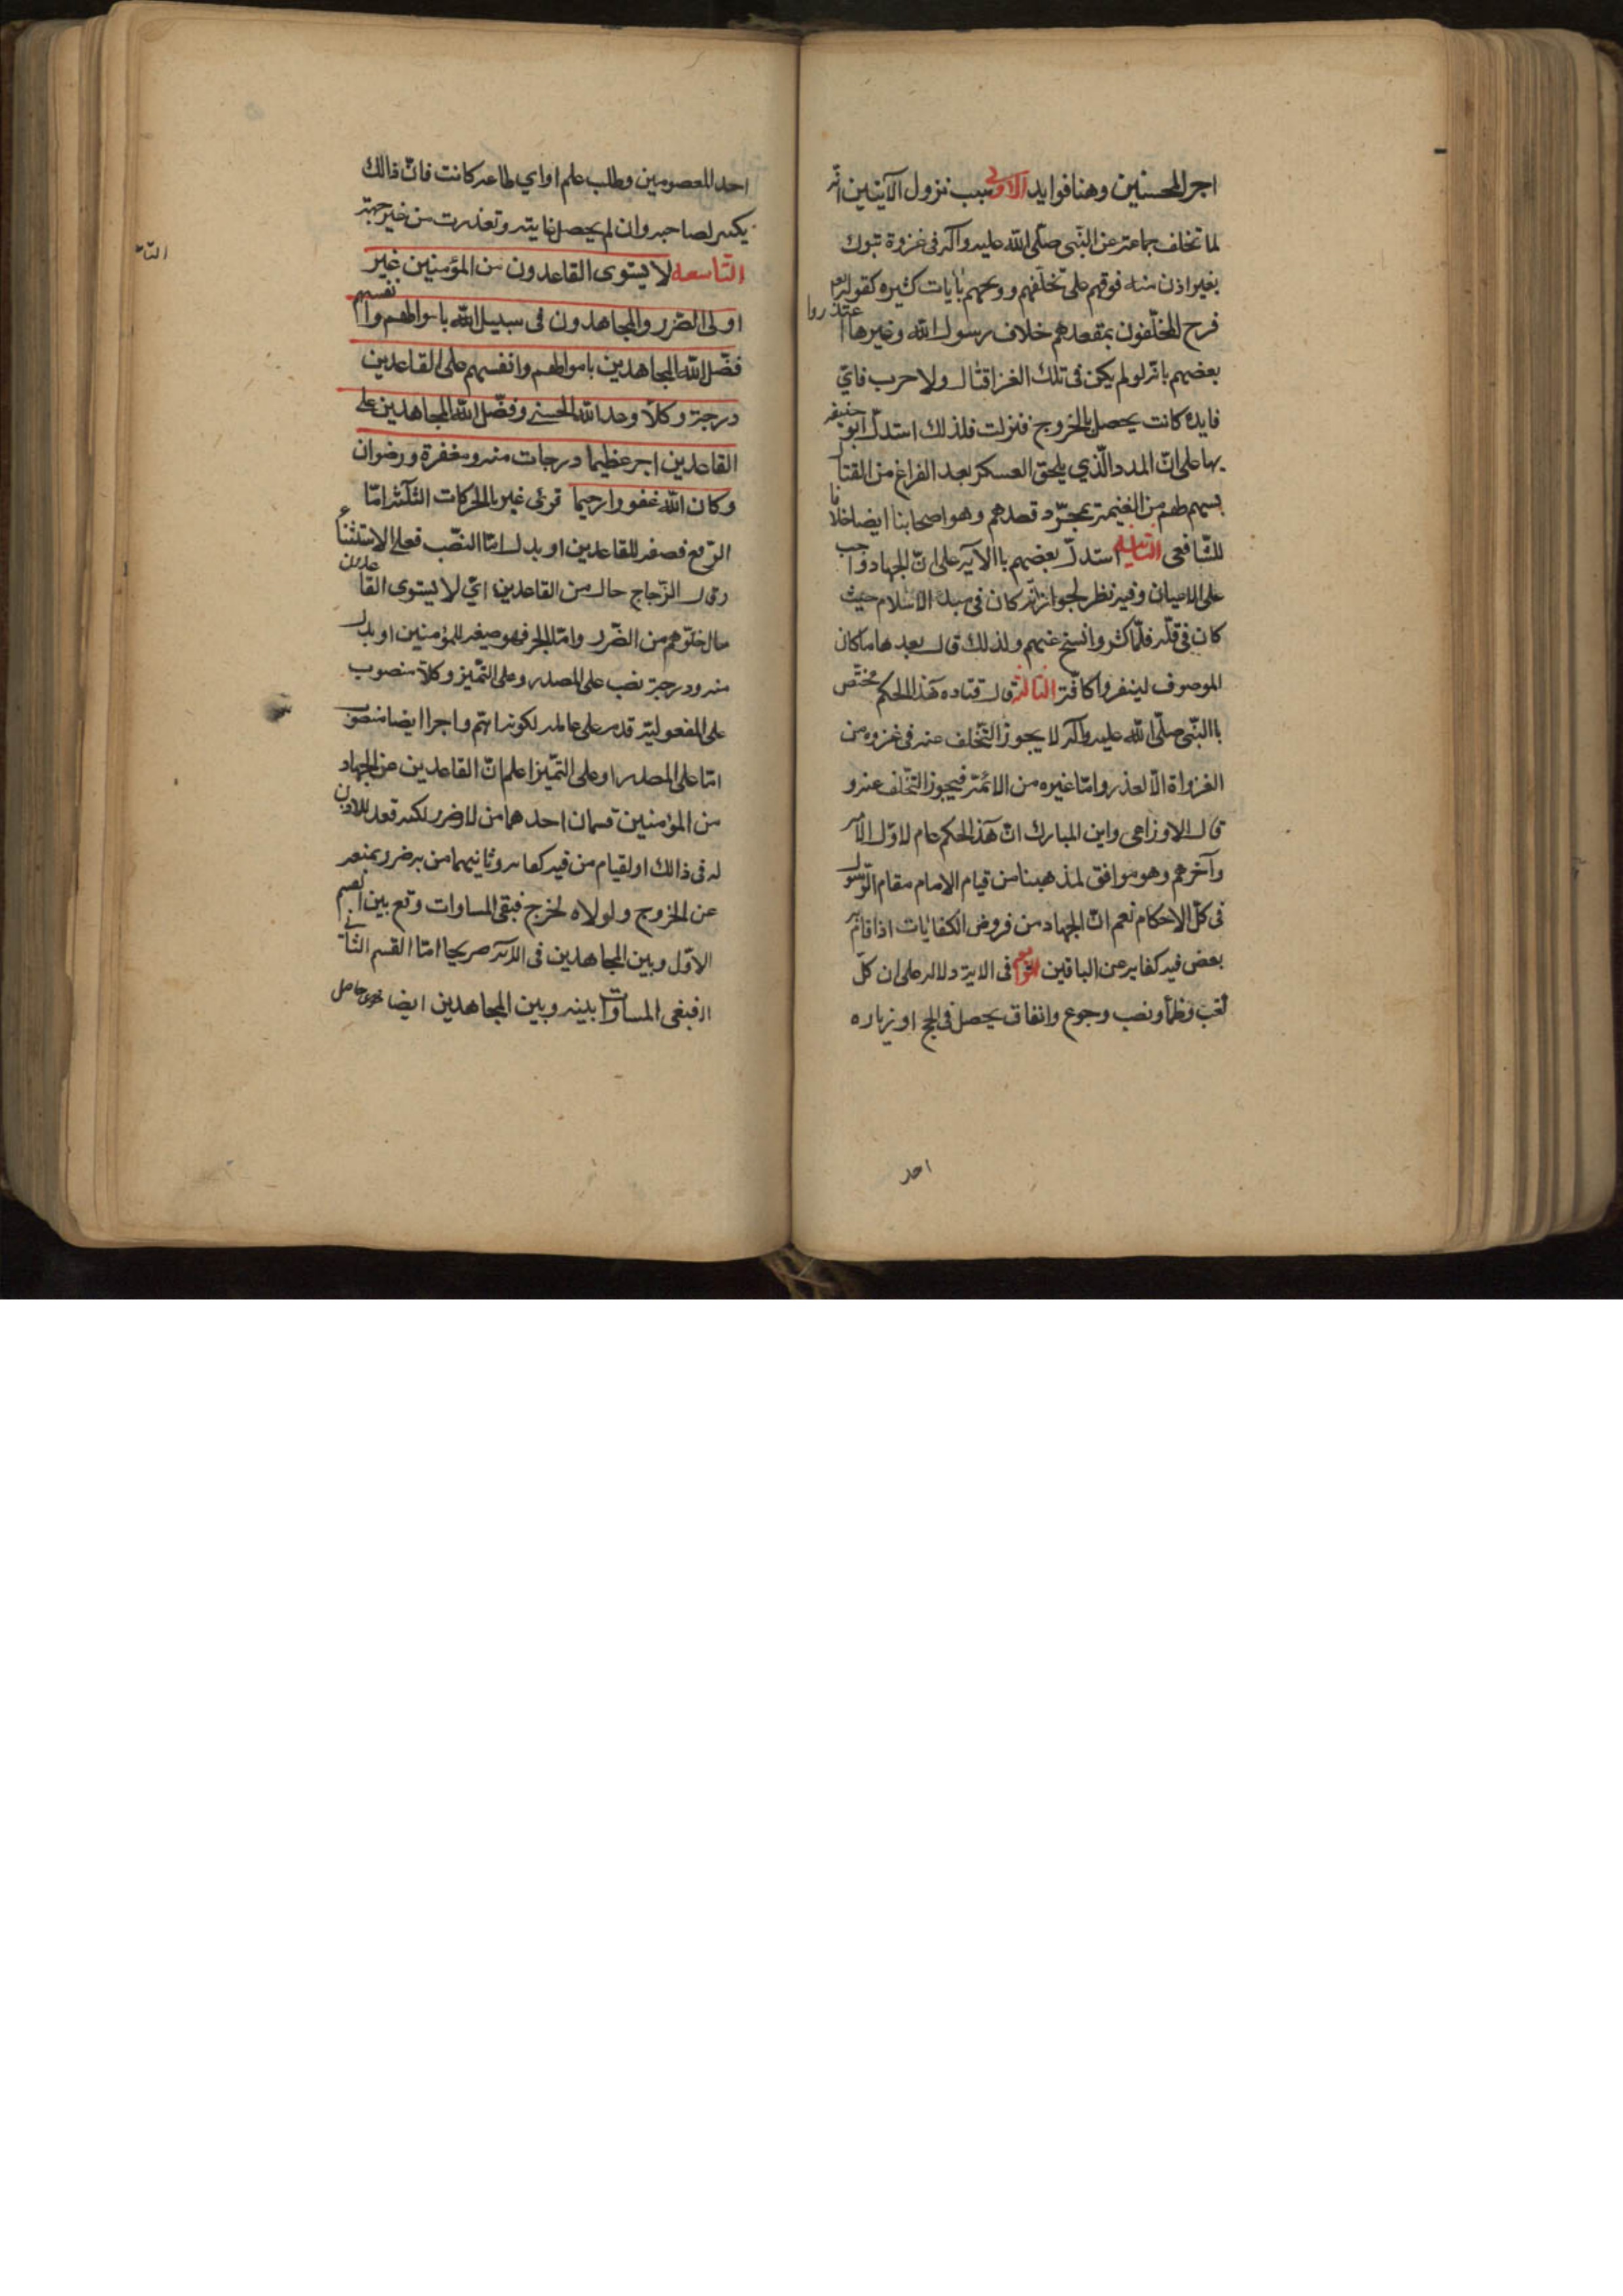 اجر المحسنين وهنا فوايد الاولى سبب نزول الآيتين انّه
لما تخلف جماعة عن النّبى صلّى اللّه عليه وآله فى غزوة تبوك
بغير اذن منه فوقهم على تخلّفهم ووبخهم بآيات كثيره كقوله
فرح المخلّفون بمقعدهم خلاف رسول اللّه وغيرها اعتذروا
بعضهم بانّه لو لم يكن فى تلك الغزا قتال ولا حرب فايّ
فايده كانت يحصل بالخروج فنزلت فلذلك استدلّ ابو حنيفه
بها على انّ المدد الّذي يلحق العسكر بعد الفراغ من القتال
يسهم لهم من الغيمة بمجرّد قصدهم وهو اصحابنا ايضا خلافا
للشّافعى الثانيه استدلّ بعضهم باالآيه على انّ الجهاد واجب
على الاعيان وفيه نظر لجواز انّه كان فى مبدء الاسلام حيث
كان فى قلّه فلمّا كثروا نسخ عنهم ولذلك قال بعدها ما كان
الموصوف لينفروا كافّة الثالثه قال قتاده هذا الحكم مختصّ
باالنّبى صلّى اللّه عليه وآله لا يجوز التّخلف عنه فى غزوه من
الغزواة الّا لعذر وامّا غيره من الائمّة فيجوز التّخلّف عنه و
قال الاوزاعى وابن المبارك انّ هذا الحكم عام لاوّل الامة
وآخرهم وهو موافق لمذهبنا من قيام الامام مقام الرّسول
فى كلّ الاحكام نعم انّ الجهاد من فروض الكفايات اذا قام به
بعض فيه كفايه عن الباقين الرابعه فى الاية دلاله على ان كلّ
تعب وظمأ ونصب وجوع وانفاق يحصل فى الحج او زياره
احد
احد المعصومين وطلب علم او اي طاعة كانت فانّ ذالك
يكتب لصاحبه وان لم يحصل غايته وتعذرت من غير جهته
التّاسعه لا يستوى القاعدون من المؤمنين غير
اولى الضّرر والمجاهدون فى سبيل اللّه باموالهم وانفسهم
فضّل اللّه المجاهدين باموالهم وانفسهم على القاعدين
درجة وكلّا وعد اللّه الحسنى وفضّل اللّه المجاهدين على
القاعدين اجر عظيما درجات منه ومغفرة ورضوان
وكان اللّه غفورا رحيما قرئ غير بالحركات الثّلث امّا
الرّفع فصفه للقاعدين او بدل امّا النصّب فعلى الاستثناء
وقال الزّجاج حال من القاعدين ايّ لا يستوى القاعدين
حال خلّوهم من الضّرر وامّا الجر فهو صفه للمؤمنين او بدل
منه ودرجة نصب على المصدر وعلى التّميز وكلّا منصوب
على المفعوليّة قدم على عامله لكونه اهتم واجرا ايضا منصوب
امّا على المصدر او على التّميز اعلم انّ القاعدين عن الجهاد
من المؤمنين قسمان احدهما من لا ضرر لكنه قعد للاذن
له فى ذالك او لقيام من فيه كفايه وثانيهما من به ضرر يمنعه
عن الخروج ولولاه لخرج فبقى المساوات وقع بين القسم
الاوّل وبين المجاهدين فى الآيه صريحا امّا القسم الثانى
المساوات بينه وبين المجاهدين ايضا حاصل